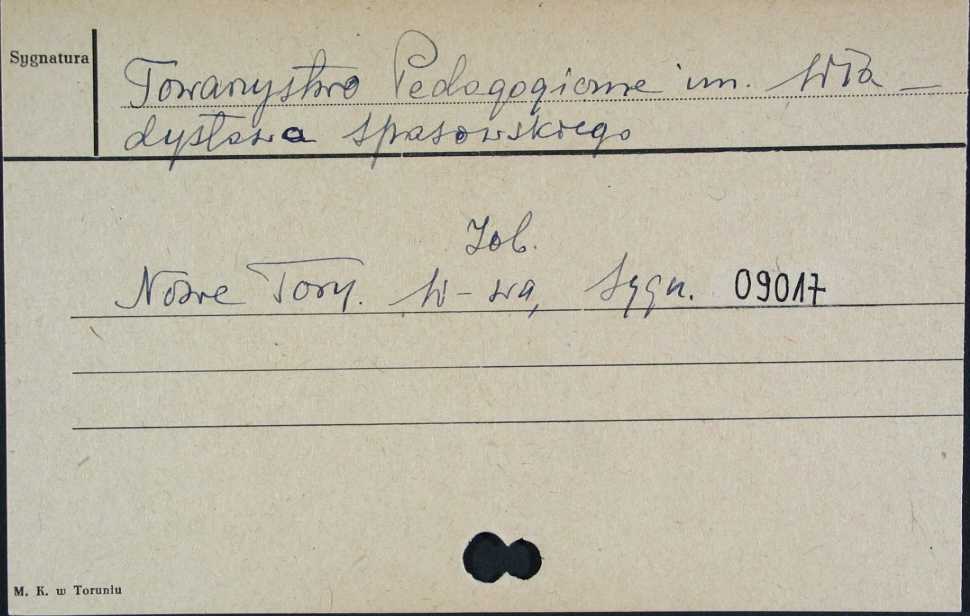 Sygnatura
Towarzystwo Pedagogiczne im. Wła-
dysława Spasowskiego
Zob.
Nowe Tory. W-wa, Sygn. 09017
M. K. w Toruniu